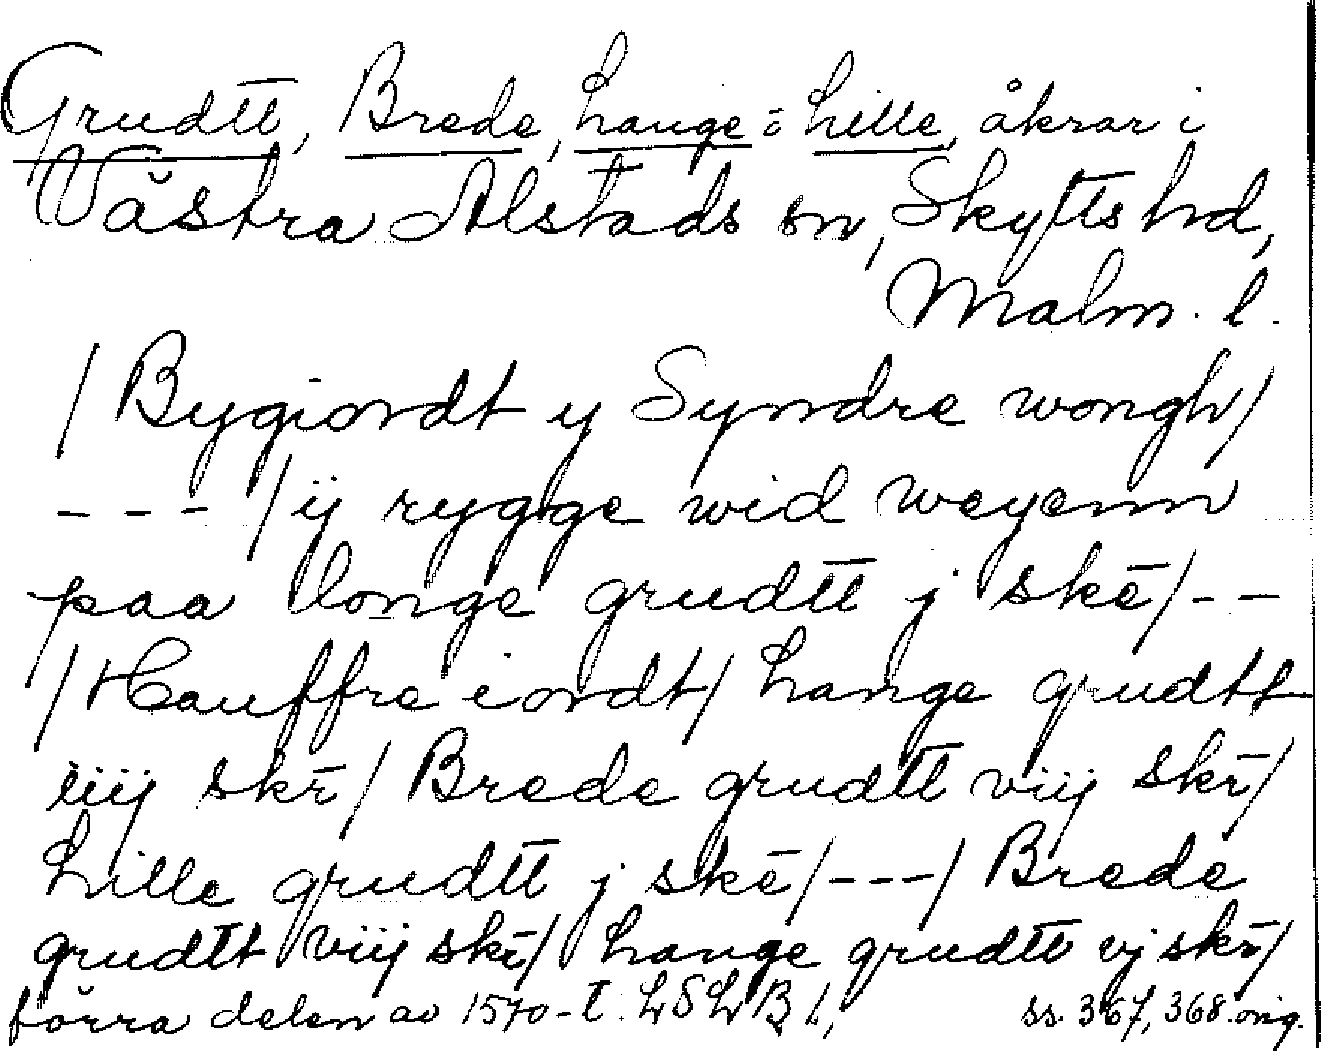 Grudtt, Brede, Lange o Lille, åkrar i
Västra Alstads sn, Skytts hd,
Malm. l.
/ Bygiordt y Syndre wongh /
--- / ij rygge wid weyenn
paa longe grudtt j skē / --
/ Hauffre iordt / Lange grudtt
iiij skr̄ / Brede grudtt viij skr̄ /
Lille grudtt j skē / --- / Brede
grudtt viij skr̄ / Lange grudtt vj skr̄ /
förra delen av 1570-t. LSLB 1, ss. 367, 368. orig.